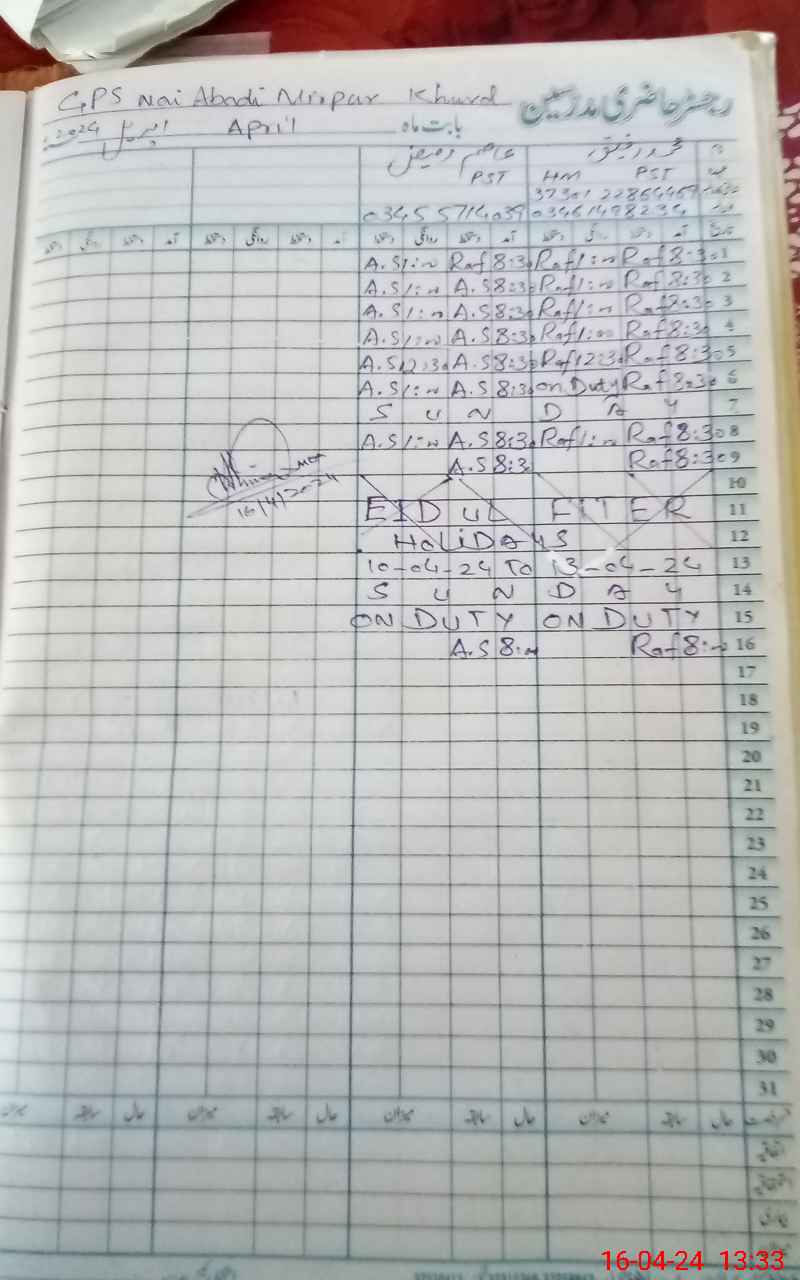 GPS Nai Abadi Mirpur Khurd
رجسٹر حاضری مدرسین
بابت ماہ April اپریل 2024
محمد رفیق
عاصم
HM PST
PST
37301
03455714039 03461498234
آمد روانگی آمد روانگی آمد روانگی آمد روانگی
1 Raf 8:30 Raf 1:00 Raf 8:30 A.S 1:00
2 Raf 8:30 Raf 1:00 A.S 8:30 A.S 1:00
3 Raf 8:30 Raf 1:00 A.S 8:30 A.S 1:00
4 Raf 8:30 Raf 1:00 A.S 8:30 A.S 1:00
5 Raf 8:30 Raf 12:30 A.S 8:30 A.S 12:30
6 Raf 8:30 on Duty A.S 8:30 A.S 1:00
7 S U N D A Y
8 Raf 8:30 Raf 1:00 A.S 8:30 A.S 1:00
9 Raf 8:30 A.S 8:30
10
11 EID UL FITER
12 HOLIDAYS
13 10-04-24 TO 13-04-24
14 S U N D A Y
15 ON DUTY ON DUTY
16 Raf 8:00 A.S 8:00
16/4/2024
17
18
19
20
21
22
23
24
25
26
27
28
29
30
31
حال سابقہ میزان حال سابقہ میزان حال سابقہ میزان
16-04-24 13:33